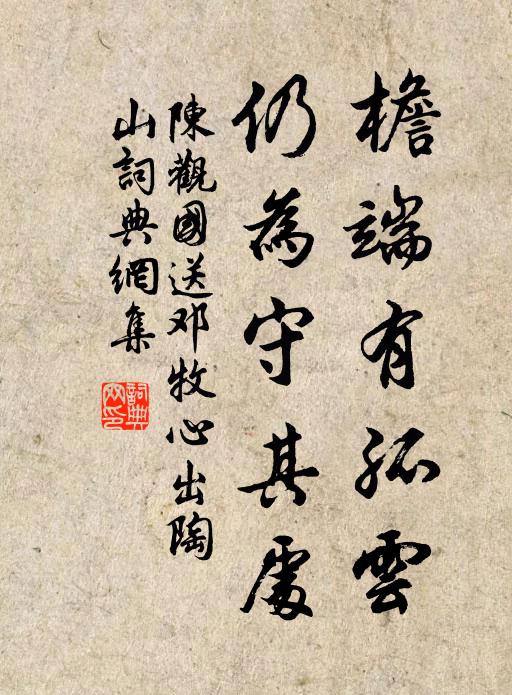 檐端有孤雲
仍為守其處
陳觀國送邓牧心出陶
山詞典網集
詞典网印